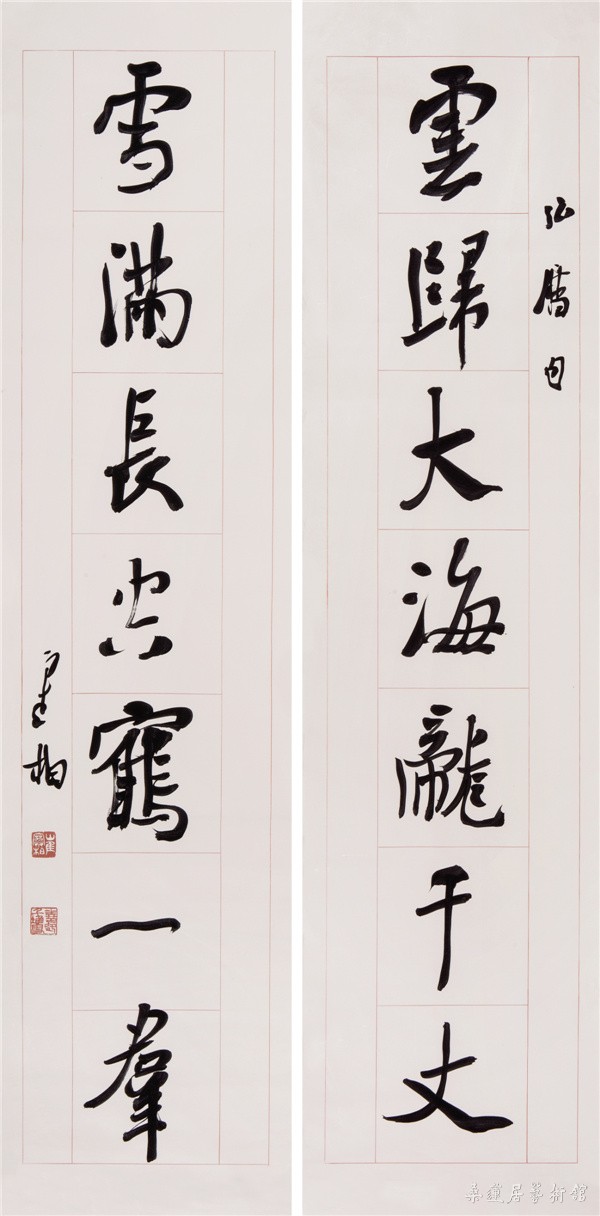 弘曆句
雲歸大海龍千丈
雪滿長空鶴一羣
寒柏
桑蓮居藝術館